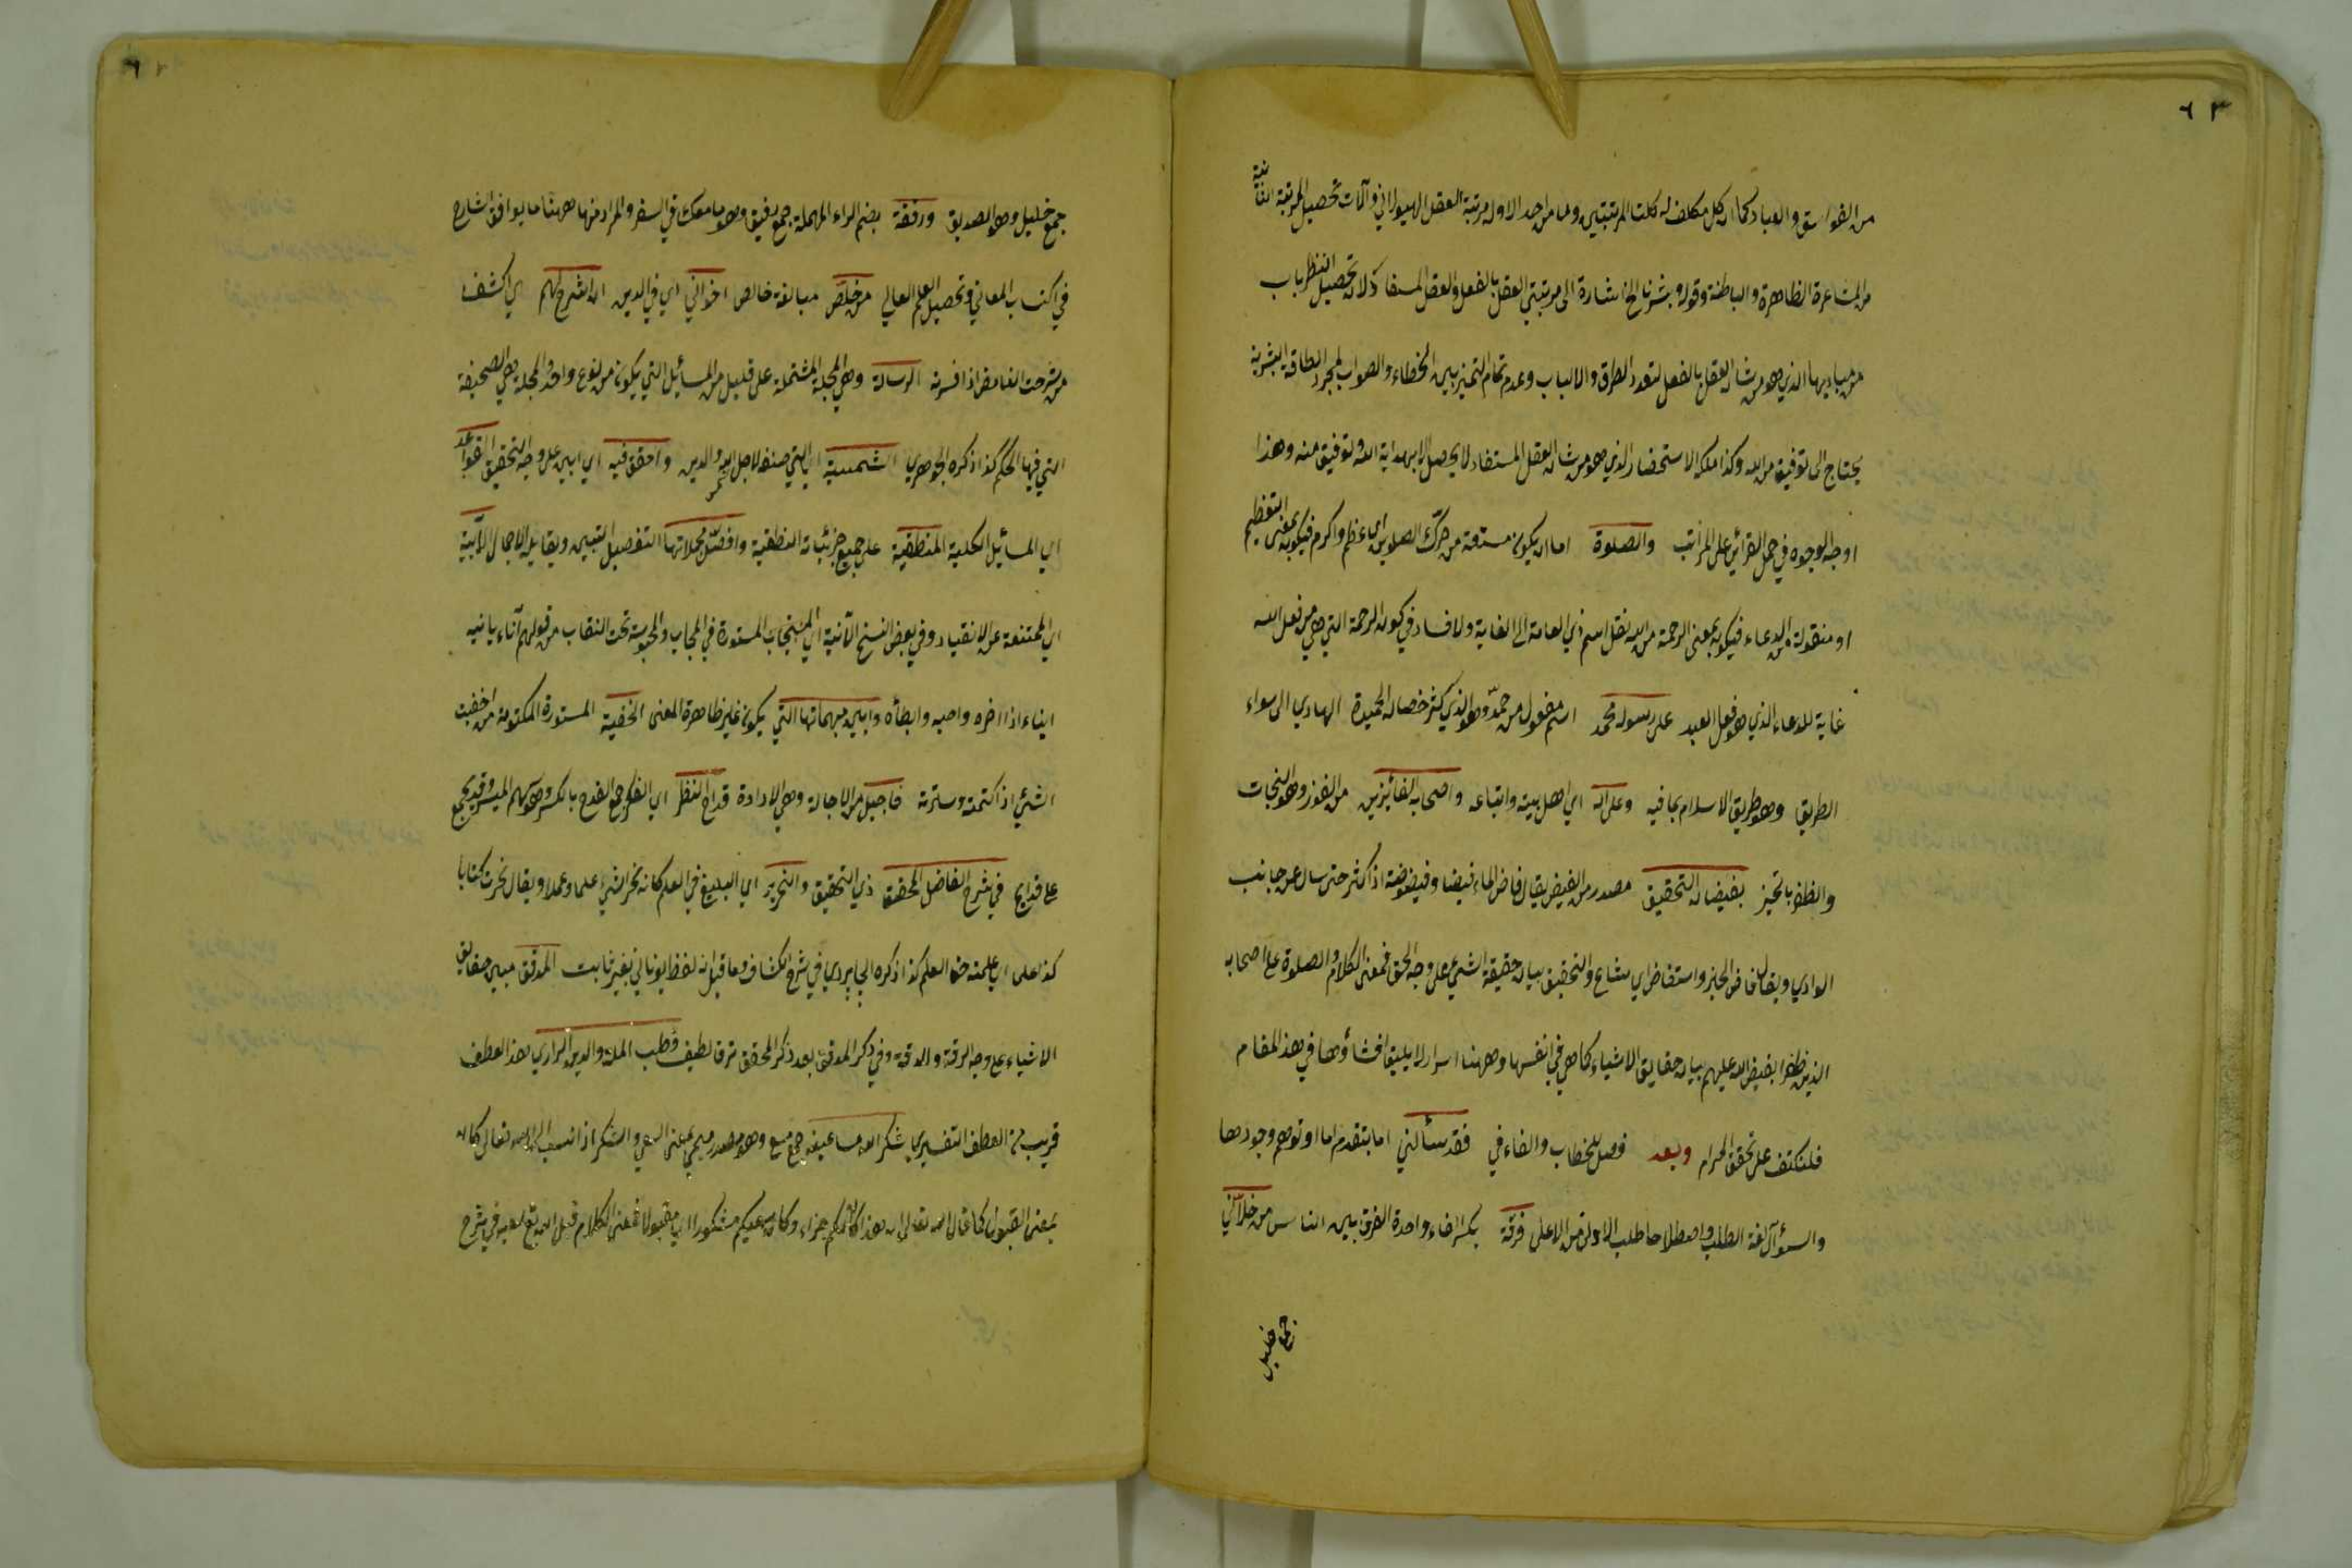 ٦٣
من الفواسق والعباد كما ان كل مكلف له كلتا المرتبتين وما من احد الا وله مرتبة العقل الهيولاني وآلات تحصيل المرتبة الثانية
من المشاعرة الظاهرة والباطنة وقوله وبشرنا الخ اشارة الى مرتبتي العقل بالفعل والعقل المستفا دلان تحصيل النظريات
من مباديها الذي هو من شان العقل بالفعل لتعدد الطرق والالباب وعدم تمام التميز بين الخطاء والصواب لمجرد الطاقة البشرية
يحتاج الى توفيق من الله وكذا ملكة الاستحضار الذي هو من شان العقل المستفاد لا يحصل الا بهداية الله وتوفيق منه وهذا
اوجه الوجوه في حمل القرائن على المراتب والصلوة اما ان يكون مشتقة من حرّك الصلوين اي عظم واكرم فيكون بمعنى التعظيم
او منقولة من الدعاء فيكون بمعنى الرحمة من الله نقل اسم ذي الغاية الى الغاية ولا فساد في كون الرحمة التي هي من فعل الله
غاية للدعاء الذي هو فعل العبد على رسوله محمد اسم مفعول من حمّد وهو الذي كثر خصاله الحميدة الهادي الى سواء
الطريق وهو طريق الاسلام بما فيه وعلى اله اي اهل بيته واتباعه واصحابه الفائزين من الفوز وهو النجات
والظفر بالخير بفيضان التحقيق مصدر من الفيض يقال فاض الماء فيضا وفيضوضة اذا كثر حتى سال عن جانب
الوادي ويقال فاض الخبر واستفاض اي شاع والتحقيق بيان حقيقة الشيء على وجه الحق فمعنى الكلام والصلوة على اصحابه
الذين ظفروا بفيض الله عليهم بيان حقايق الاشياء كما هي في انفسها وههنا اسرار لا يليق افشاؤها في هذ المقام
فلنكتف على تحقق المرام وبعد فصل للخطاب والفاء في فقد سألني اما بتقدم اما او توهم وجودها
والسؤآل لغة الطلب واصطلاحا طلب الادنى من الاعلى فرقة بكسر الفاء واحدة الفرق بين الناس من خلاّني
جمع خليل
جمع خليل وهو الصديق ورفقة بضم الراء المهملة جمع رفيق وهو ما معك في السفر والمراد منها ههنا ما يوافق الشارح
في اكتساب المعاني وتحصيل العلم العالي من خلّص مبالغة خالص اخواني اي في الدين ان اشرح لهم اي اكشف
من شرحت الغامض اذا فسرته الرسالة وهي المجلة المشتملة على قليل من المسائل التي يكون من نوع واحد والمجلة هي الصحيفة
التي فيها الحكم كذا ذكره الجوهري الشمسية اي التي صنفه لاجل شمس الملة والدين واحقق فيه اي ابين على وجه التحقيق القواعد
اي المسائل الكلية المنطقية على جميع جزئياته المنطقية وافصّل مجملاتها التفصيل التبيين ويقابله الاجمال الآبية
اي الممتنعة عن الانقياد وفي بعض النسخ الآنية اي المستجاب المستورة في الحجاب والمحبوسة تحت النقاب من قولهم آناه يانيه
ايناء اذا اخره واحبسه وابطأه وابين مبهماتها التي يكون غير ظاهرة المعنى الخفية المستورة المكتومة من اخفيت
الشيء اذا كتمته وسترته فاجيل من الاجالة وهي الادادة قداح النظر اي الفكر جمع القدح بالكسر وهو سهم الميسر وقد يجمع
على قداح في شرح الفاضل المحقق ذي التحقيق والنحرير اي البليغ في العلم كانه نحر الشيء علما وعملا ويقال نحرت كتابا
كذا على اي علمته حق العلم كذا ذكره الجابردي في شرح الكشاف وما قيل انه لفظ يوناني بغير ثابت المدقق مبين حقايق
الاشياء على وجه الرقة والدقة وفي ذكر المدقق بعد ذكر المحقق ترقا لطيف قطب الملة والدين الرازي هذا العطف
قريب من العطف التفسيري شكر الله مساعيه جمع مسع وهو مصدر ميمي بمعنى السعي والشكر اذا نسب الى الله تعالى كان
بمعنى القبول كما قال الله تعالى ان هذا كان لكم جزاء وكان سعيكم مشكورا اي مقبولا فمعنى الكلام قبل الله تع سعيه في شرح